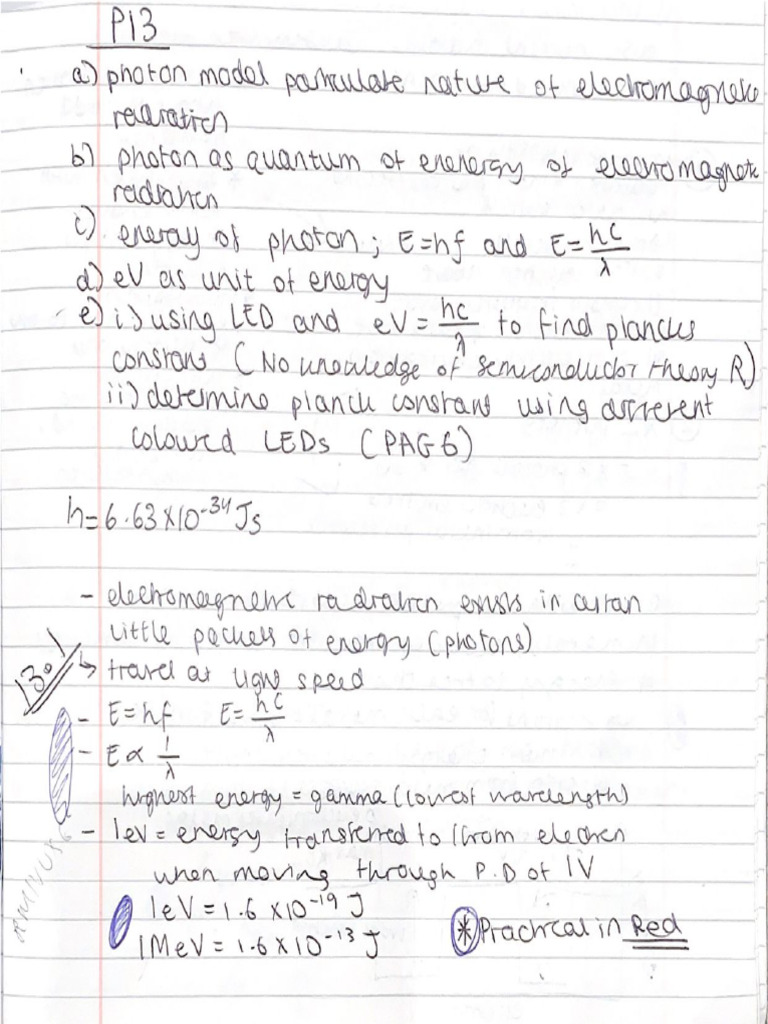 P13
a) photon model particulate nature of electromagnetic
radiation
b) photon as quantum of enenergy of electromagnetic
radiation
c) energy of photon; E=hf and E=hc/λ
d) eV as unit of energy
e) i) using LED and eV = hc/λ to find plancks
constant (No knowledge of semiconductor theory R)
ii) determine planck constant using different
coloured LEDs (PAG6)
h=6.63×10⁻³⁴Js
- electromagnetic radiation exists in certain
little packets of energy (photons)
13.1
↳ travel at light speed
- E=hf E=hc/λ
- E ∝ 1/λ
highest energy = gamma (lowest wavelength)
- 1eV = energy transferred to/from electron
when moving through P.D of 1V
1eV = 1.6×10⁻¹⁹ J
1MeV = 1.6×10⁻¹³ J
* Practical in Red